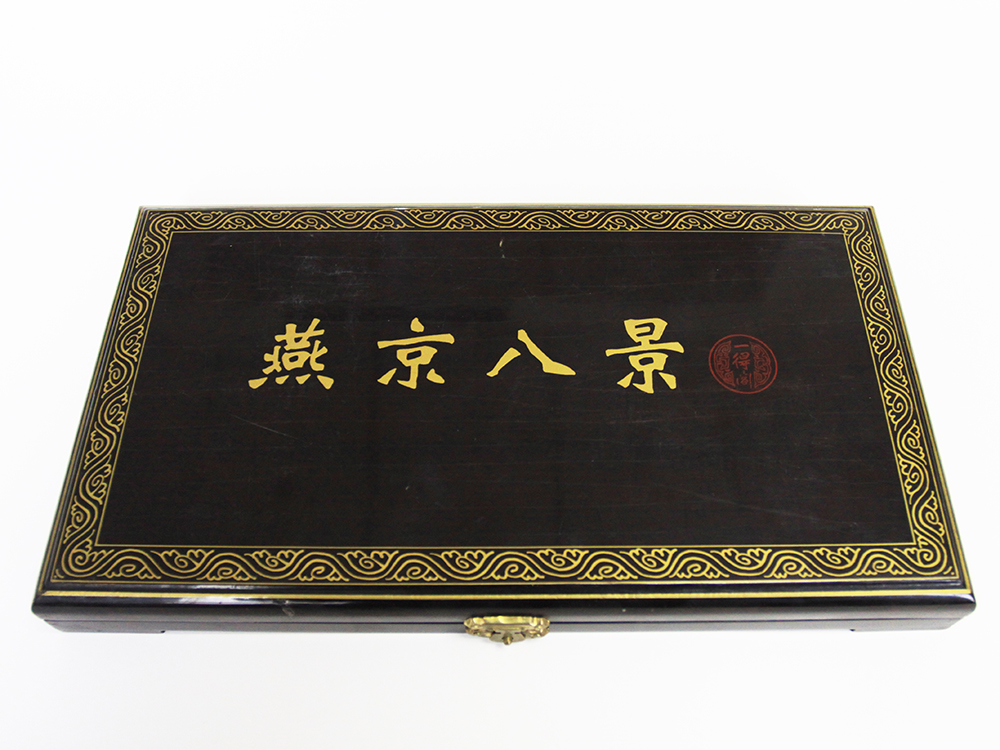 燕京八景
一得阁